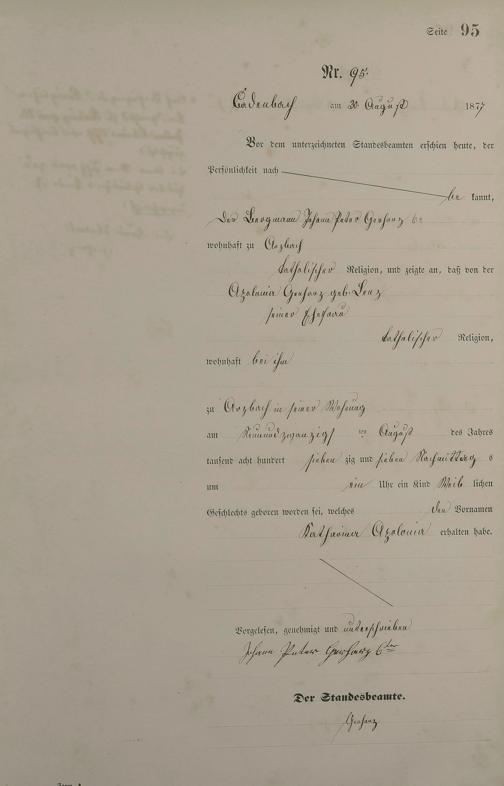 Seite 95
Nr. 95.
Cadenbach am 30. August 1877
Vor dem unterzeichneten Standesbeamten erschien heute, der
Persönlichkeit nach
be kannt,
der Bergmann Johann Peter Gerharz 6r
wohnhaft zu Arzbach
katholischer Religion, und zeigte an, daß von der
Apolonia Gerharz geb. Lenz
seiner Ehefrau
katholischer Religion,
wohnhaft bei ihm
zu Arzbach in seiner Wohnung
am Neunundzwanzigsten August des Jahres
tausend acht hundert sieben zig und sieben Nachmittag s
um ein Uhr ein Kind Weib lichen
Geschlechts geboren worden sei, welches den Vornamen
Katharina Apolonia erhalten habe.
Vorgelesen, genehmigt und unterschrieben
Johann Peter Gerharz 6ter
Der Standesbeamte.
Gerharz